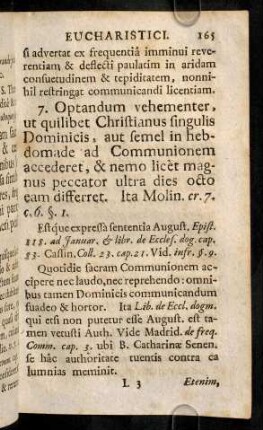 EUCHARISTICI. 165
si advertat ex frequentiâ imminui reve-
rentiam & deflecti paulatim in aridam
consuetudinem & tepiditatem, nonni-
hil restringat communicandi licentiam.
7. Optandum vehementer,
ut quilibet Christianus singulis
Dominicis, aut semel in heb-
domade ad Communionem
accederet, & nemo licèt mag-
nus peccator ultra dies octo
eam differret. Ita Molin. tr. 7.
c. 6. §. 1.
Estque expressa sententia August. Epist.
118. ad Januar. & libr. de Eccles. dog. cap.
53. Cassin. Coll. 23. cap. 21. Vid. infr. §. 9.
Quotidie sacram Communionem ac-
cipere nec laudo, nec reprehendo: omni-
bus tamen Dominicis communicandum
suadeo & hortor. Ita Lib. de Eccl. dogm.
qui etsi non putetur esse August. est ta-
men vetusti Auth. Vide Madrid. de freq.
Comm. cap. 3. ubi B. Catharinæ Senen.
se hâc authoritate tuentis contra ca
lumnias meminit.
L 3 Etenim,